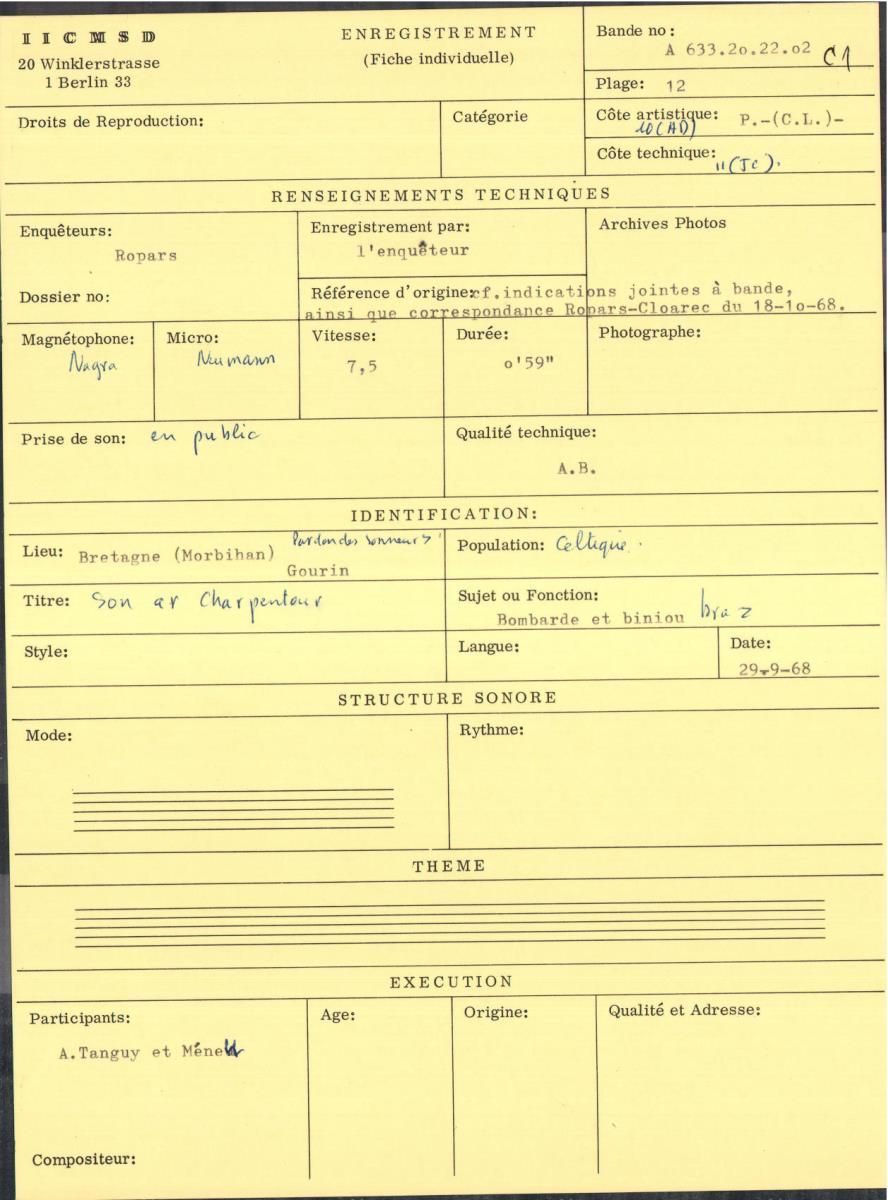 IICMSD
20 Winklerstrasse
1 Berlin 33
ENREGISTREMENT
(Fiche individuelle)
Bande no:
A 633.2o.22.o2 C1
Plage: 12
Droits de Reproduction:
Catégorie
Côte artistique: P.-(C.L.)-
10(AD)
Côte technique:
11(Jc).
RENSEIGNEMENTS TECHNIQUES
Enquêteurs:
Ropars
Dossier no:
Enregistrement par:
l'enquêteur
Archives Photos
Référence d'origine:cf.indications jointes à bande,
ainsi que correspondance Ropars-Cloarec du 18-1o-68.
Magnétophone:
Nagra
Micro:
Neumann
Vitesse:
7,5
Durée:
o'59"
Photographe:
Prise de son: en public
Qualité technique:
A.B.
IDENTIFICATION:
Lieu: Bretagne (Morbihan) Pardon des Sonneurs
Gourin
Population: Celtique.
Titre: Son ar Charpentour
Sujet ou Fonction:
Bombarde et biniou braz
Style:
Langue:
Date:
29-9-68
STRUCTURE SONORE
Mode:
Rythme:
THEME
EXECUTION
Participants:
A.Tanguy et
Age:
Origine:
Qualité et Adresse:
Compositeur: